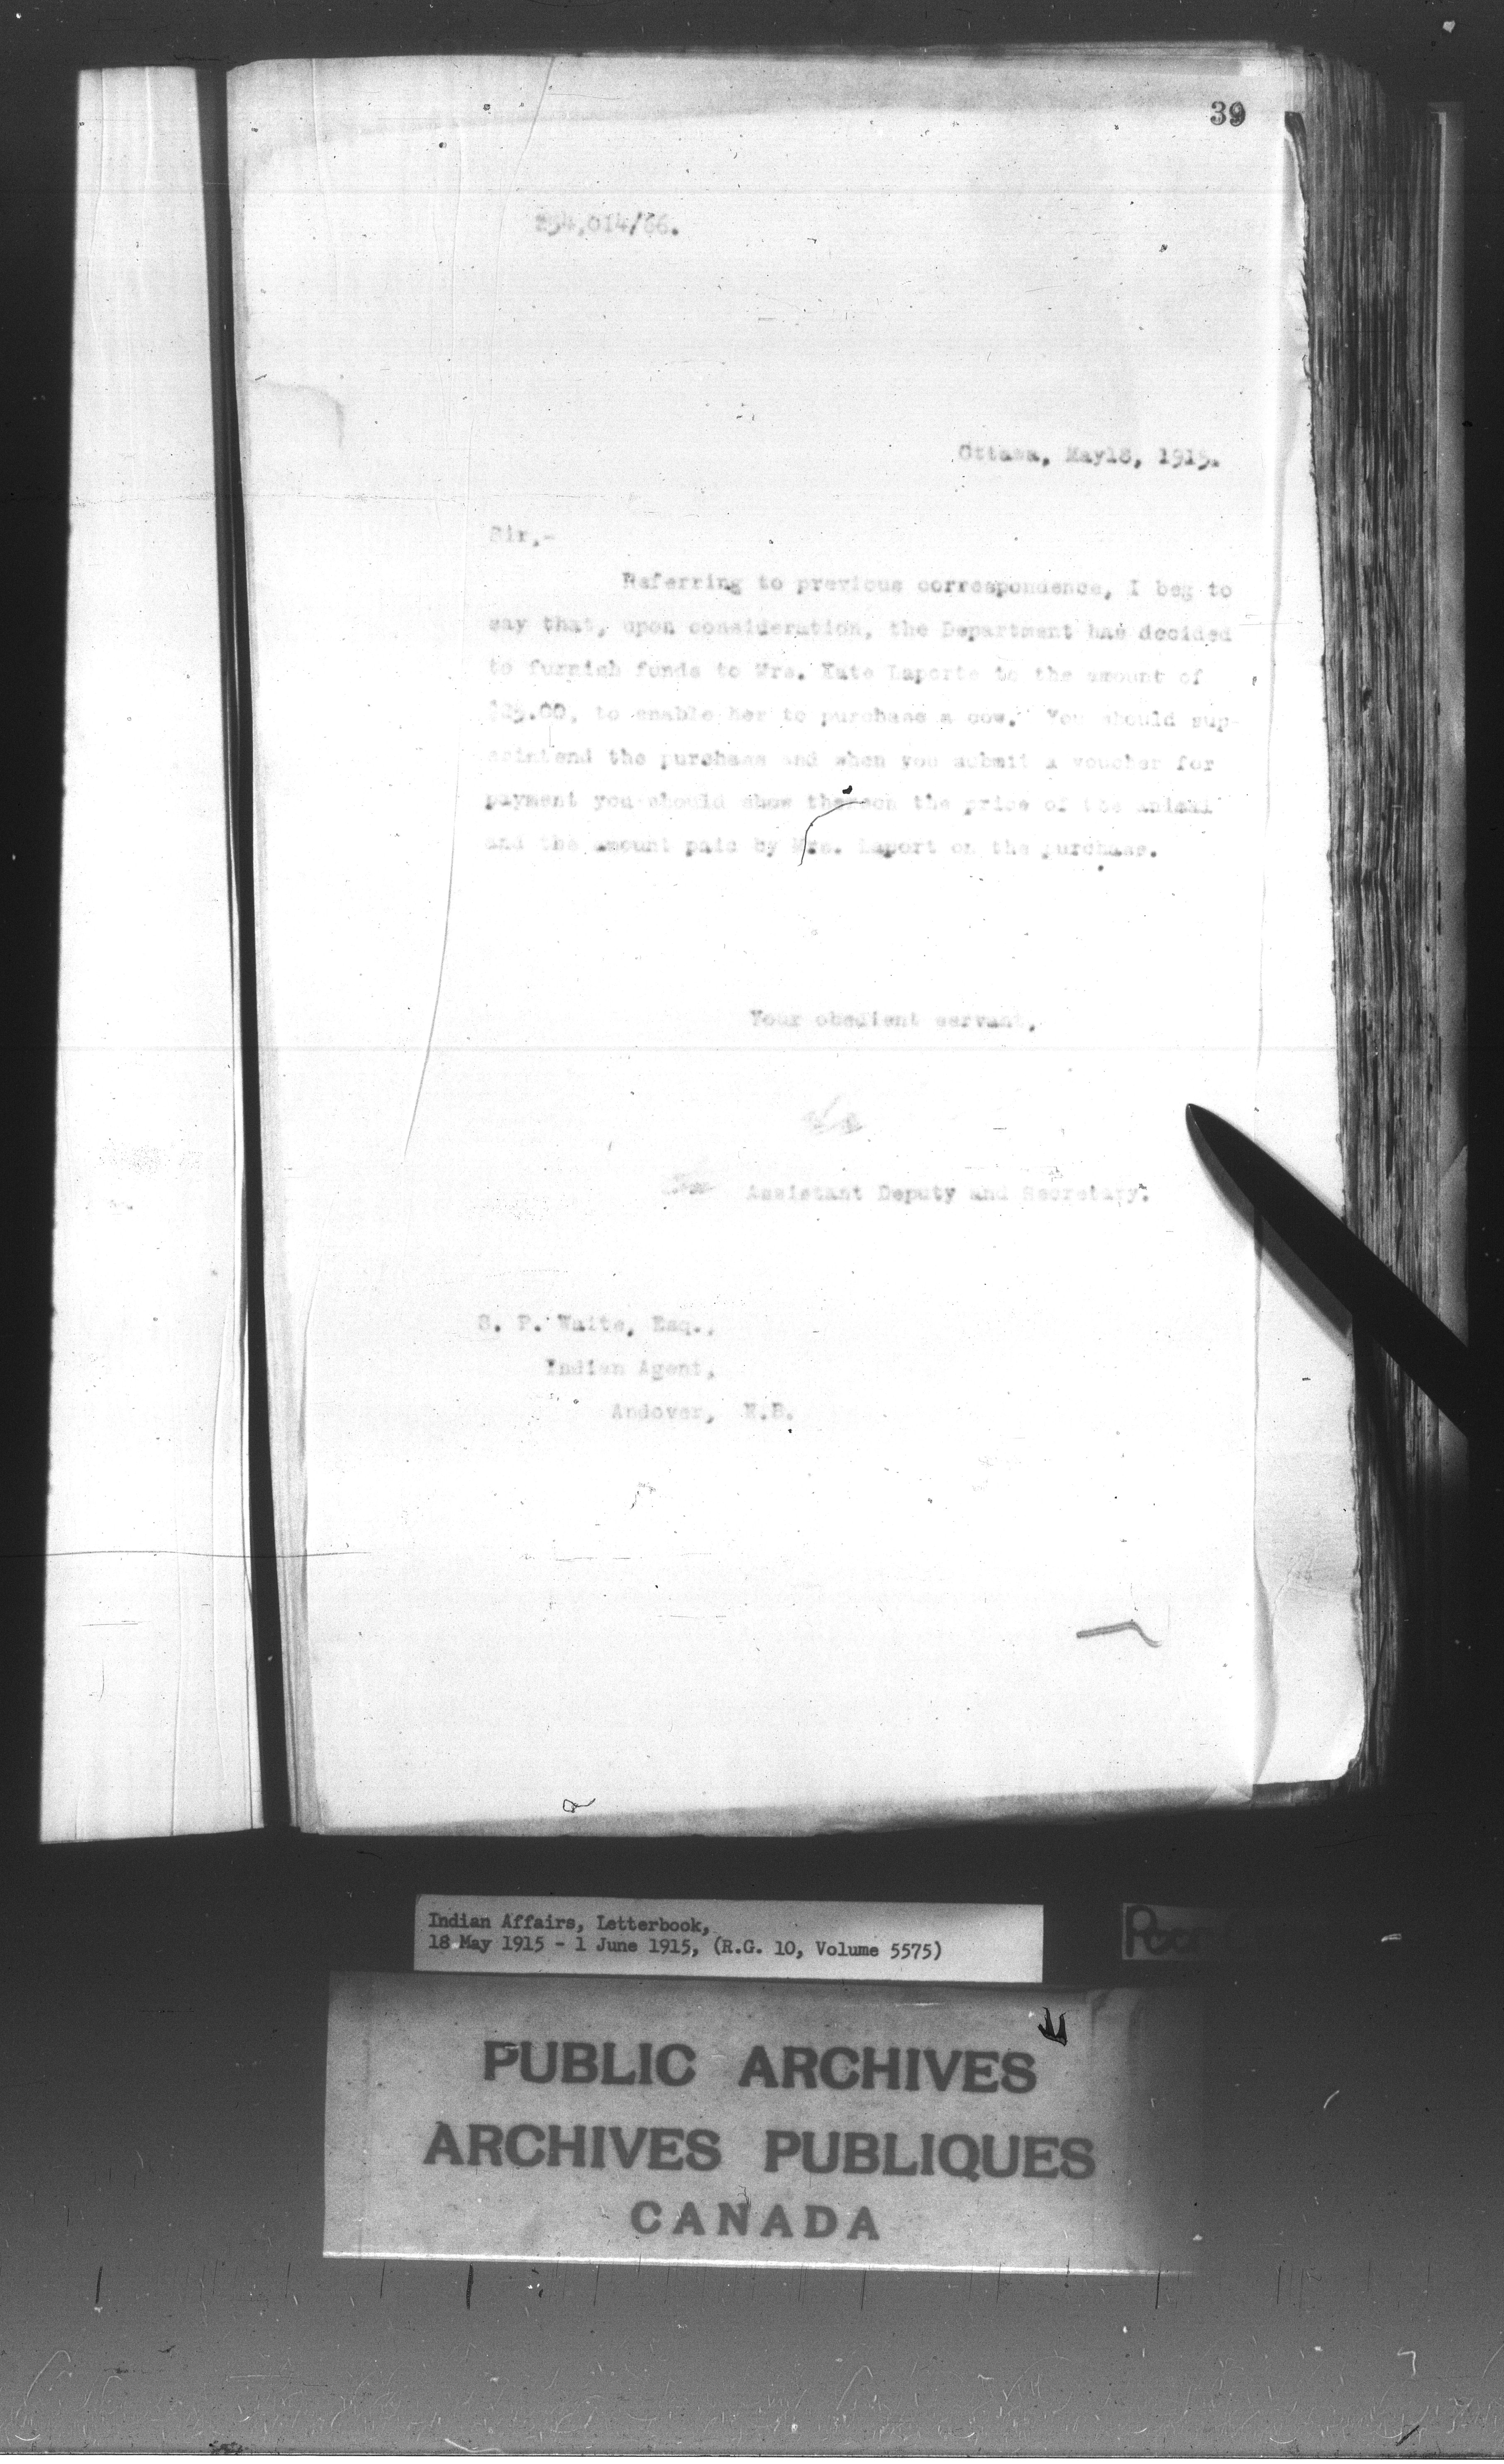 39
254,014/66.
Ottawa, May18, 1915.
Sir,-
Referring to previous correspondence, I beg to
say that, upon consideration, the Department has decided
to furnish funds to Mrs. Kate Laporte to the amount of
$25.00, to enable her to purchase a cow. You should sup-
erintend the purchase and when you submit a voucher for
payment you should show thereon the price of the animal
and the amount paid by Mrs. Laport on the purchase.
Your obedient servant,
Assistant Deputy and Secretary.
S. P. Waite, Esq.,
Indian Agent,
Andover, N.B.
Indian Affairs, Letterbook,
18 May 1915 - 1 June 1915, (R.G. 10, Volume 5575)
PUBLIC ARCHIVES
ARCHIVES PUBLIQUES
CANADA